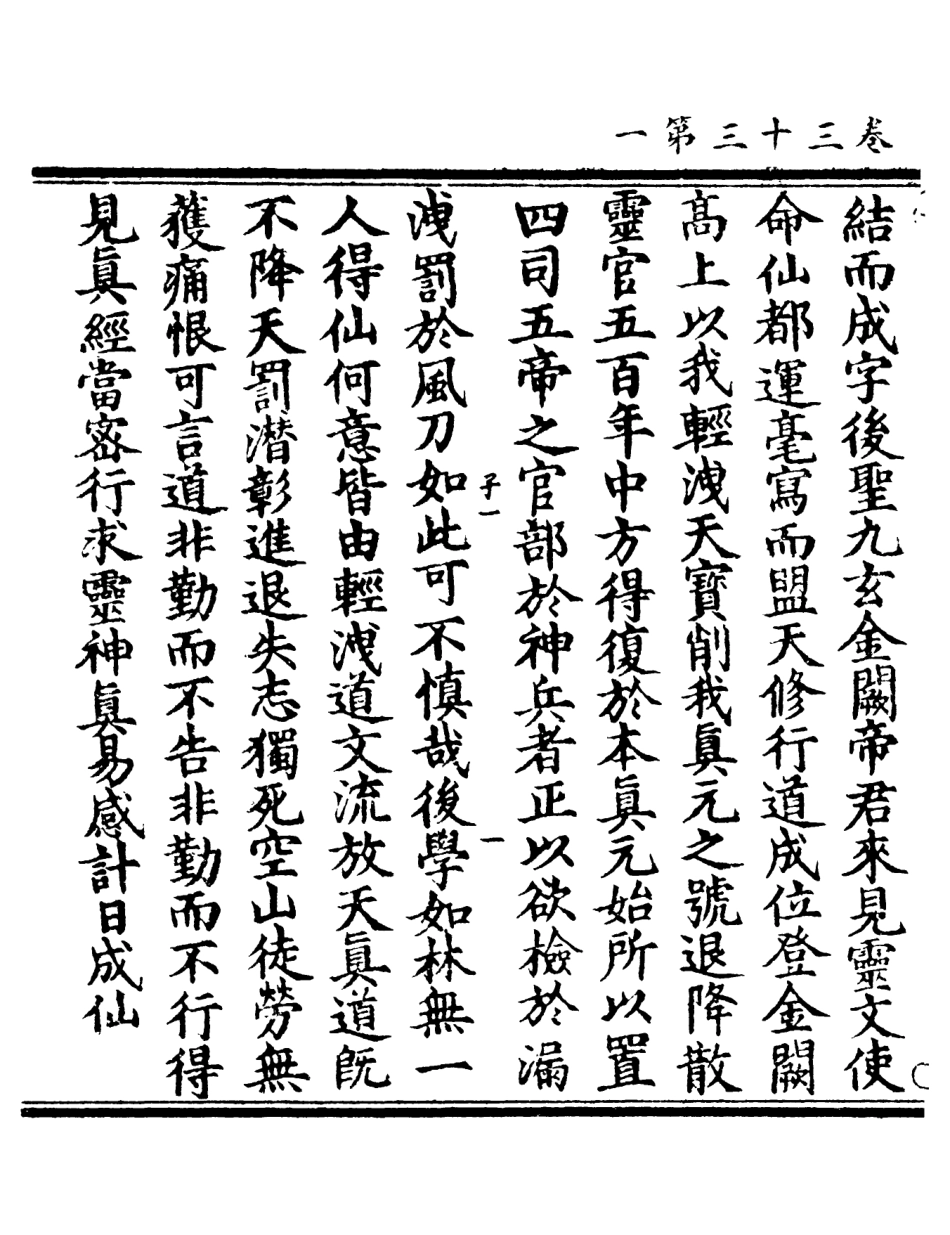 卷三十三第一
結而成字後聖九玄金闕帝君來見靈文使
命仙都運毫寫而盟天修行道成位登金闕
高上以我輕洩天寶削我眞元之號退降散
靈官五百年中方得復於本眞元始所以置
四司五帝之官部於神兵者正以欲檢於漏
子一
一
洩罰於風刀如此可不慎哉後學如林無一
人得仙何意皆由輕洩道文流放天眞道旣
不降天罰潛彰進退失志獨死空山徒勞無
獲痛恨可言道非勤而不告非勤而不行得
見眞經當密行求靈神眞易感計日成仙